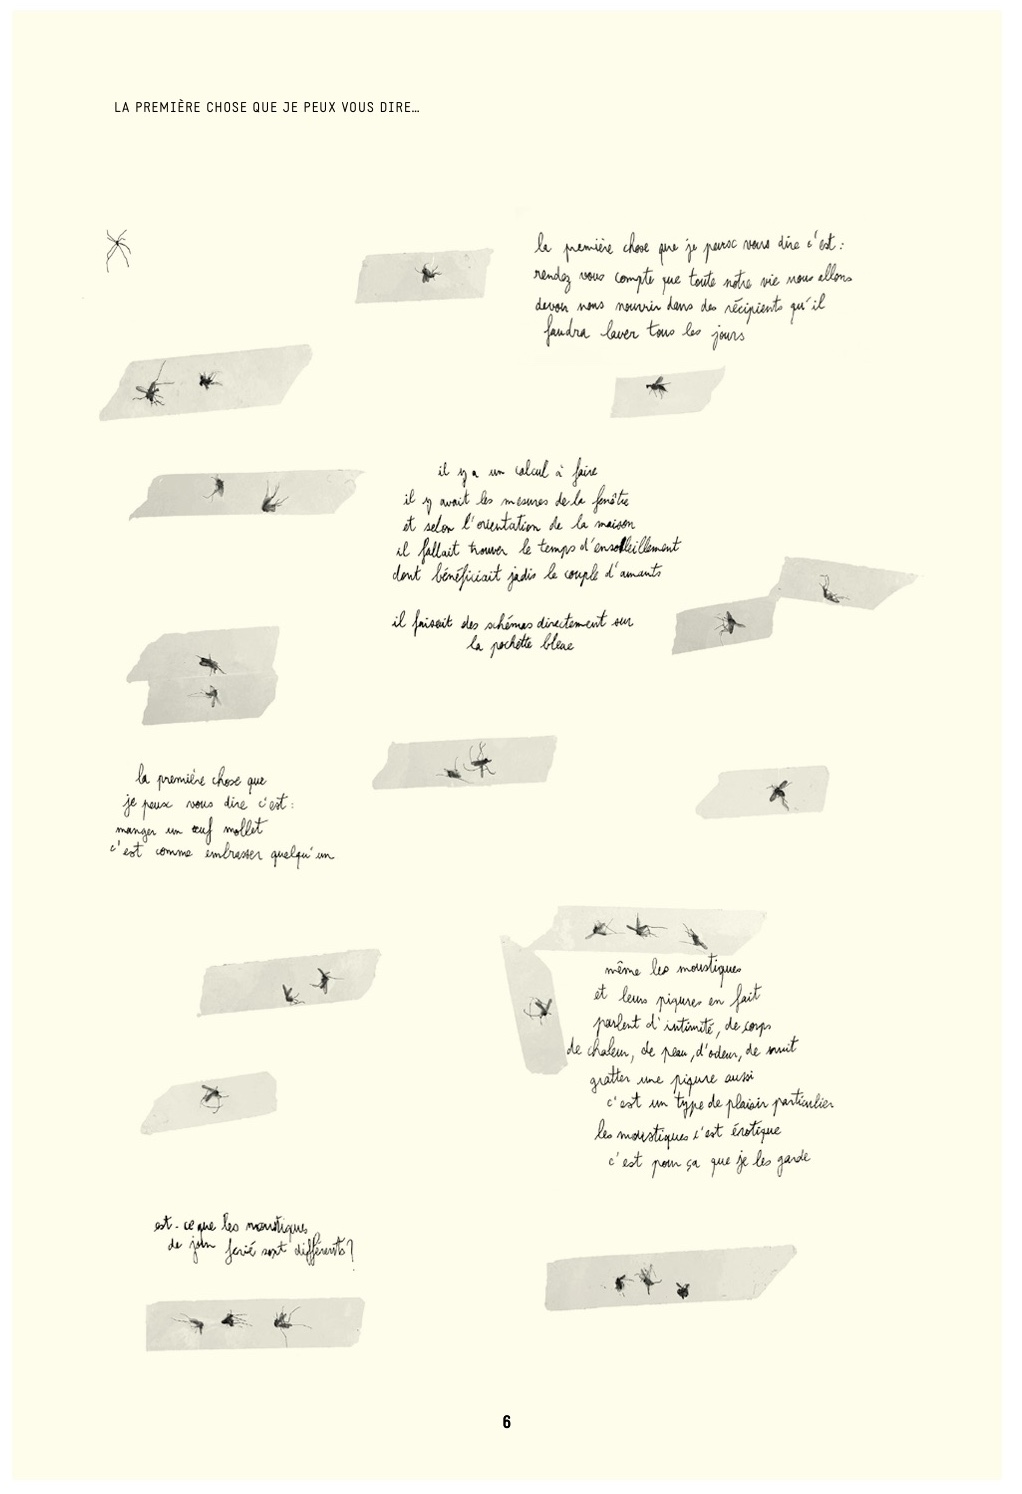 LA PREMIÈRE CHOSE QUE JE PEUX VOUS DIRE…
la première chose que je peux vous dire c'est :
rendez vous compte que toute notre vie nous allons
devoir nous nourrir dans des récipients qu'il
faudra laver tous les jours
il y a un calcul à faire
il y avait les mesures de la fenêtre
et selon l'orientation de la maison
il fallait trouver le temps d'ensolleillement
dont bénéficiait jadis le couple d'amants
il faisait des schémas directement sur
la pochette bleue
la première chose que
je peux vous dire c'est :
manger un œuf mollet
c'est comme embrasser quelqu'un
même les moustiques
et leurs piqures en fait
parlent d'intimité, de corps
de chaleur, de peau, d'odeur, de nuit
gratter une piqure aussi
c'est un type de plaisir particulier
les moustiques c'est érotique
c'est pour ça que je les garde
est-ce que les moustiques
de jour ferié sont différents ?
6